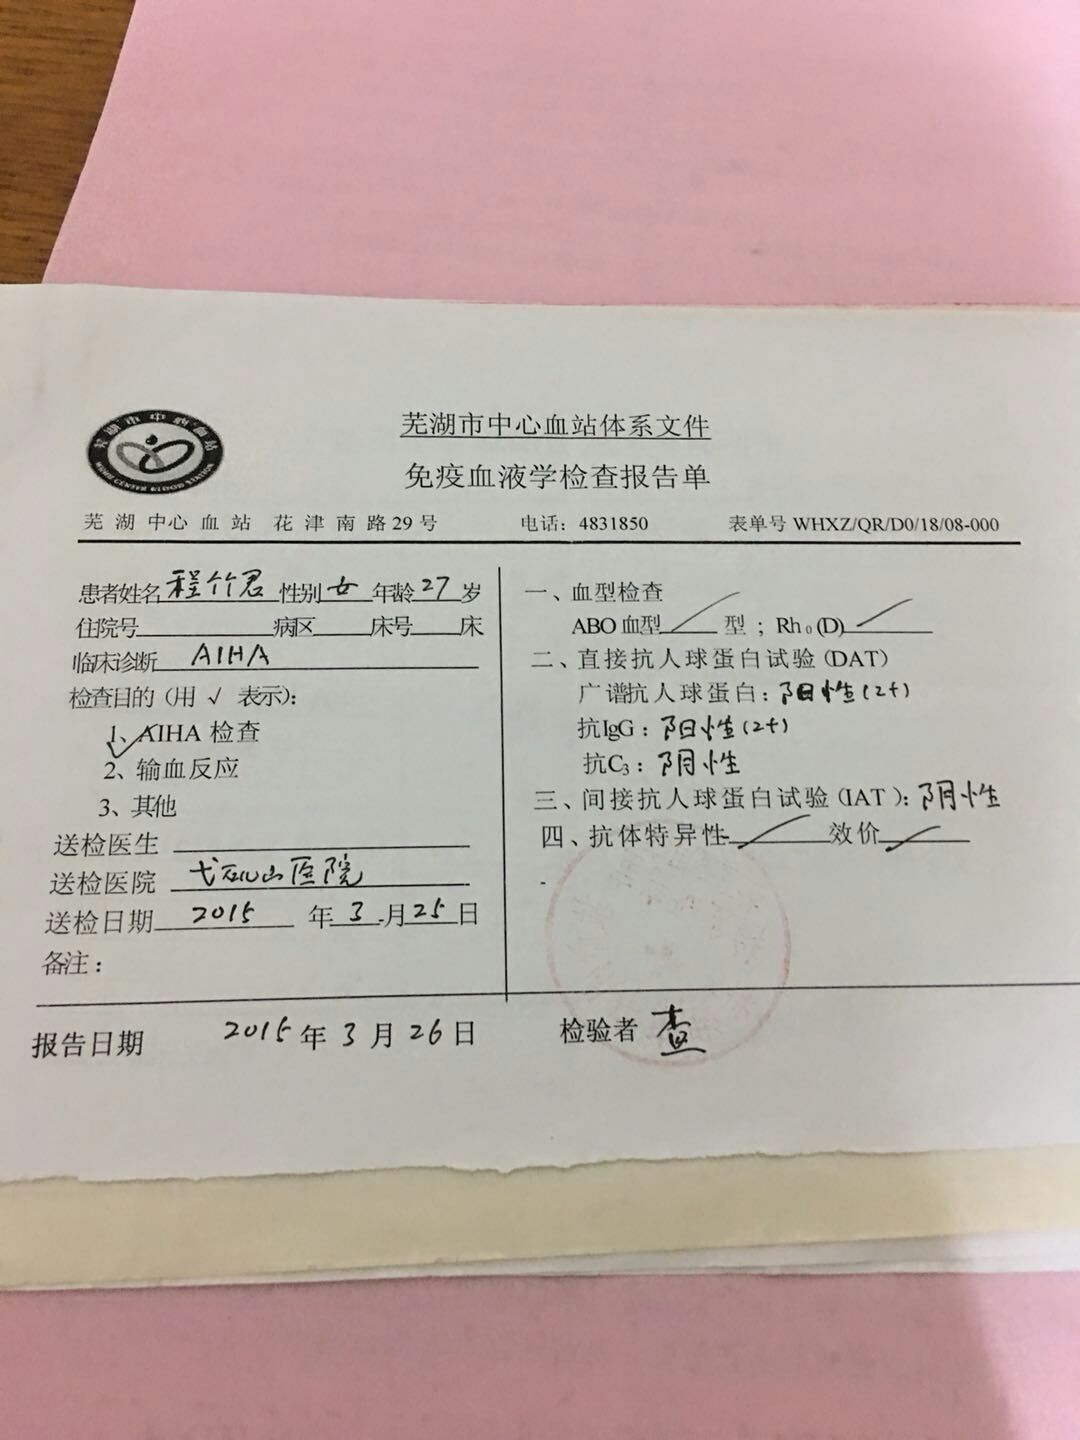 芜湖市中心血站
WUHU CENTER BLOOD STATION
芜湖市中心血站体系文件
免疫血液学检查报告单
芜湖中心血站 花津南路29号 电话：4831850 表单号 WHXZ/QR/D0/18/08-000
患者姓名 程竹君 性别 女 年龄 27 岁
住院号 病区 床号 床
临床诊断 AIHA
检查目的（用 √ 表示）：
1、AIHA 检查
2、输血反应
3、其他
送检医生
送检医院 弋矶山医院
送检日期 2015 年 3 月 25 日
备注：
一、血型检查
ABO 血型 型；Rh₀(D)
二、直接抗人球蛋白试验(DAT)
广谱抗人球蛋白：阳性(2+)
抗IgG：阳性(2+)
抗C₃：阴性
三、间接抗人球蛋白试验(IAT)：阴性
四、抗体特异性 效价
报告日期 2015 年 3 月 26 日 检验者 查